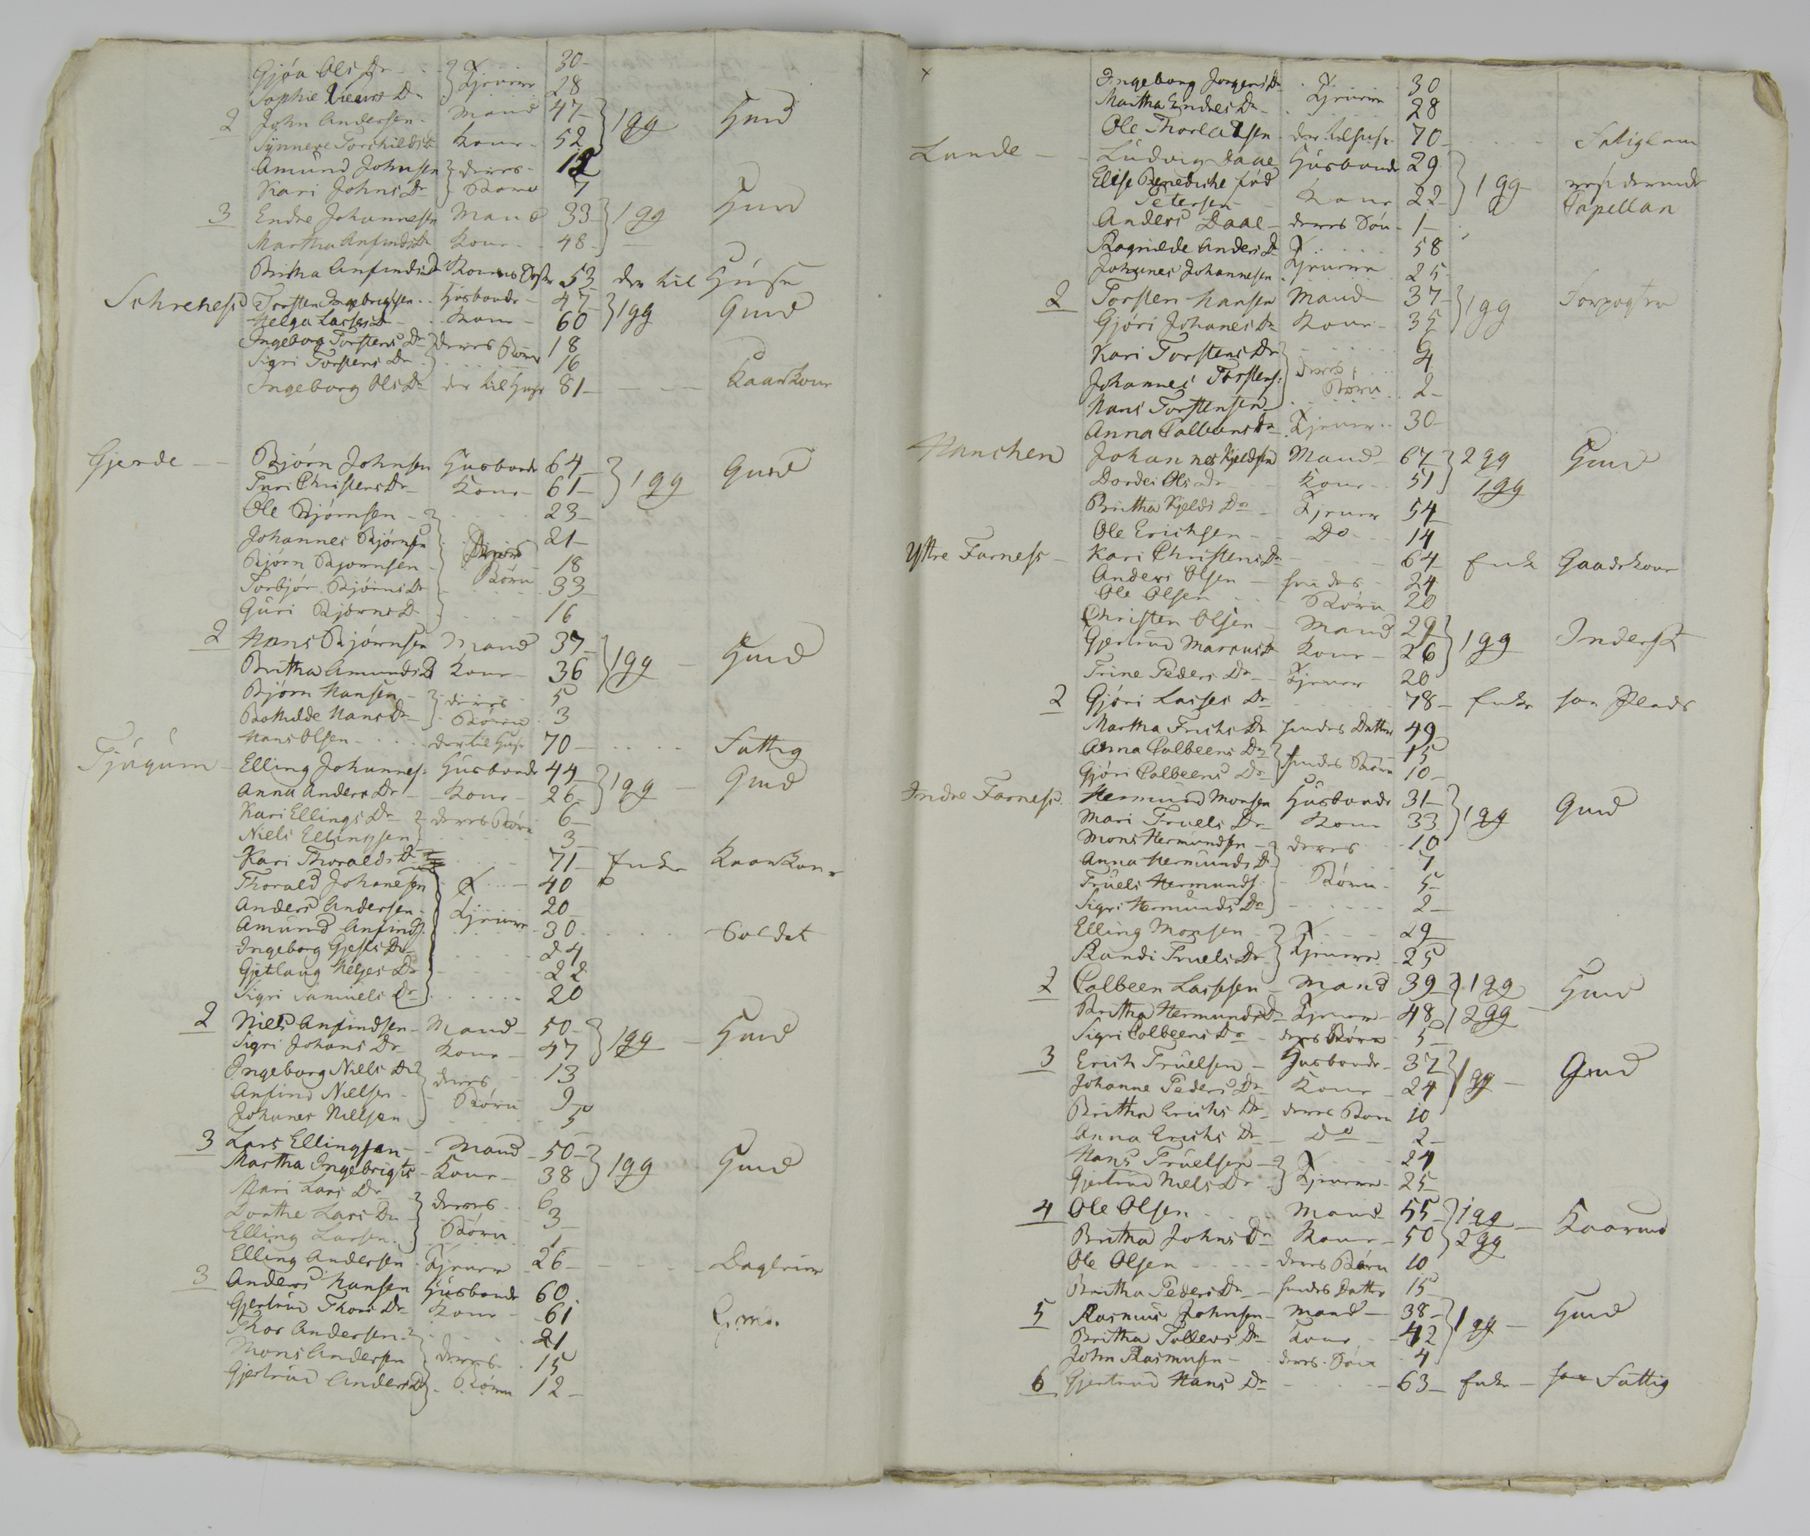 Gjøa Ols Dr 30
Sophie Dr Tjenere 28
2 John Andersen Mand 47 1 gg Gmd
Synneve Torchilds Dr Kone 52
Amund Johnsen deres 12
Kari Johns Dr Børn 7
3 Endre Johannesen Mand 33 1 gg Gmd
Martha Anfinds Dr Kone 48
Britha Anfinds Dr Konens 53 der til Huse
Torsten Ingebrigtsen Husbonde 47 1 gg Gmd
Helga Lasses Dr Kone 60
Ingeborg Torstens Dr deres Børn 18
Sigri Torstens Dr 16
Ingeborg Ols Dr der til Huse 81 Kaarkone
Gjerde Bjørn Johnsen Husbonde 64 1 gg Gmd
Turi Christens Dr Kone 61
Ole Bjørnsen 23
Johannes Bjørnsen deres 21
Bjørn Bjørnsen Børn 18
Torbjør Bjørns Dr 33
Guri Bjørns Dr 16
2 Hans Bjørnsen Mand 37 1 gg Gmd
Britha Amunds D Kone 36
Bjørn Hansen deres 5
Bothilde Hans Dr Børn 3
Hans Olsen der til Huse 70 Fattig
Tjugum Elling Johannes: Husbonde 44 1 gg Gmd
Anna Anders Dr Kone 26
Kari Ellings Dr deres Børn 6
Niels Ellingsen 3
Kari Thoralds Dr 71 Enke Kaarkone
Thorald Johanesen 40
Anders Andersen Tjenere 20
Amund Anfinds: 30 Soldat
Ingeborg Gjests Dr 24
Gjetlaug Helges Dr 22
Sigri Samuels Dr 20
2 Niels Anfindsen Mand 50 1 gg Gmd
Sigri Johans Dr Kone 47
Ingeborg Niels Dr deres 13
Anfind Nielsen Børn 9
Johanes Nielsen 5
3 Lars Ellingsen Mand 50 1 gg Gmd
Martha Ingebrigts Kone 38
Mari Lars Dr deres 6
Dorthe Lars Dr Børn 3
Elling Larsen 1
Elling Andersen Tjener 26
3 Anders Hansen Husbonde 60
Gjertrud Thors Dr Kone 61
Thor Andersen 21
Mons Andersen deres 15
Gjertrud Anders D Børn 12
Ingeborg Jørgens Dr 30
Martha Endres Dr Tjenere 28
Ole Thorlaksen der til huse 70
Lunde Ludvig Daae Husbonde 29 1 gg residerende
Elise Benedicte fød Capellan
Petersen Kone 22
Anders Daae deres Søn 1
Ragnilde Anders D 58
Johanes Johannesen Tjenere 25
2 Torsten Hansen Mand 37 1 gg
Gjøri Johanes Dr Kone 35
Kari Torstens Dr 6
Johannes Torstens: deres 4
Hans Torstensen Børn 2
Anna Colbeens Dr Tjener 30
Johannes Kjeldsen Mand 67 2 gg Gmd
Dordei Ols Dr Kone 51 1 gg
Britha Kjelds Dr Tjener 54
Ole Erichsen Do 14
Yttre Farness Kari Christens Dr 64 Enke Gaardkone
Anders Olsen hendes 24
Ole Olsen Børn 20
Christen Olsen Mand 29 1 gg Inderst
Gjertrud Marcus Dr Kone 26
Trine Peders Dr Tjener 20
2 Gjøri Lasses Dr 78 Enke paa Plads
Martha Erichs Dr hendes Datter 49
Anna Colbeens Dr hendes Børn 15
Gjøri Colbeens Dr 10
Indre Farness Hermund Monsen Husbonde 31 1 gg Gmd
Mari Truels Dr Kone 33
Mons Hermundsen deres 10
Anna Hermunds D 7
Truels Hermunds: Børn 5
Sigri Hermunds Dr 2
Elling Monsen 29
Randi Truels Dr Tjenere 25
2 Colbeen Lassesen Mand 39 1 gg Gmd
Britha Hermunds Dr Tjener 48 2 gg
Sigri Colbeens Dr deres Børn 5
3 Erich Truelsen Husbonde 37 1 gg Gmd
Johanne Peders Dr Kone 24
Britha Erichs Dr deres Børn 10
Anna Erichs Dr Do 2
Hans Truelsen 24
Gjertrud Niels Dr Tjenere 25
4 Ole Olsen Mand 55 1 gg Kaarmd
Britha Johns Dr Kone 50 2 gg
Ole Olsen deres Børn 10
Britha Peders Dr hendes Datter 15
5 Rasmus Johnsen Mand 38 1 gg Gmd
Britha Tollevs Dr Kone 42
John Rasmusen deres Søn 4
6 Gjertrud Hans Dr 63 Enke Fattig